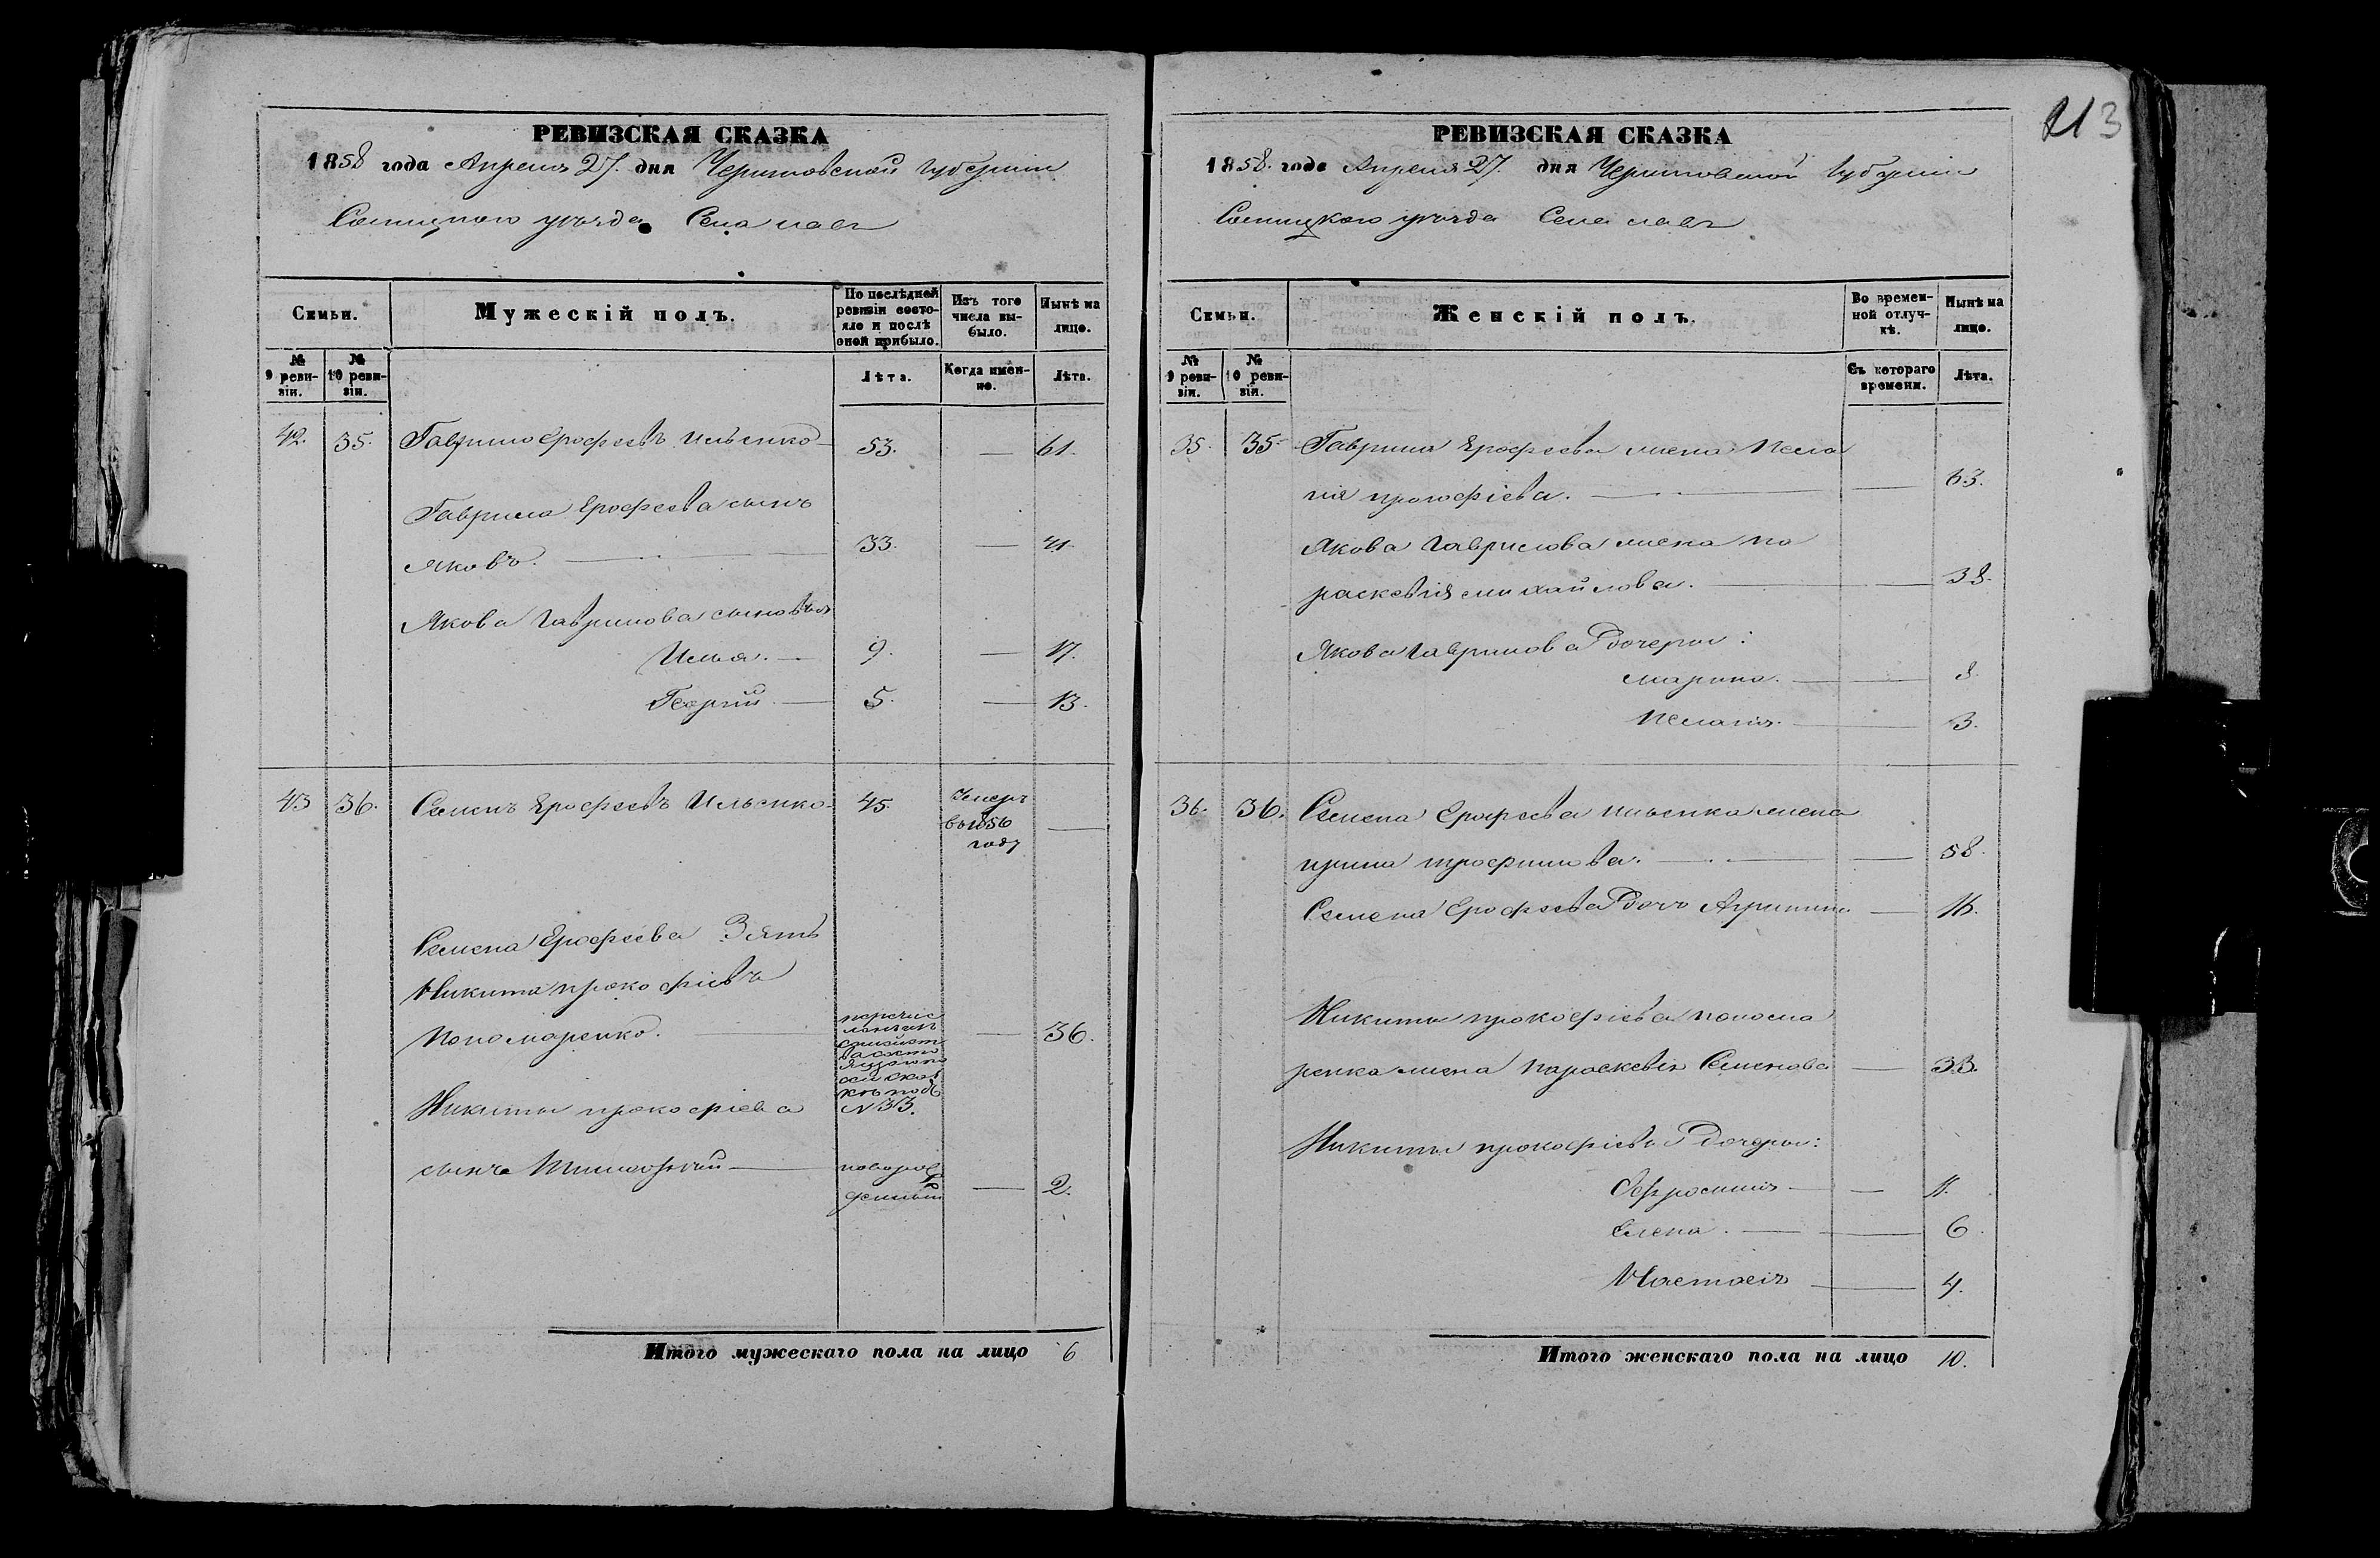 213
РЕВИЗСКАЯ СКАЗКА
1858 года Апреля 27. дня Черниговской губернии
Сосницкого уезда Села
Семьи.
Мужескій полъ.
По послѣдней ревизіи состояло и послѣ оной прибыло.
Изъ того числа выбыло.
Нынѣ на лицо.
№ 9 ревизіи.
№ 10 ревизіи.
Лѣта.
Когда именно.
Лѣта.
42. 35. Гаврило Ерофеевъ Ильенко 53. — 61.
Гаврила Ерофеева сынъ
Яковъ. — 33. — 41.
Якова Гаврилова сыновья
Илья. — 9. — 17.
Георгий — 5. — 13.
43 36. Семенъ Ерофеевъ Ильенко. 45. Умеръ
въ 1856
году —
Семена Ерофеева Зять
Никита прокофіевъ
Пономаренко. — 36.
№ 33.
Никиты прокофіева
сынъ Тимофей — новорож
денный — 2.
Итого мужескаго пола на лицо 6
РЕВИЗСКАЯ СКАЗКА
1858. года Апреля 27. дня Черниговской губернии
Сосницкого уезда Села
Семьи.
Женскій полъ.
Во временной отлучкѣ.
Нынѣ на лицо.
№ 9 ревизіи.
№ 10 ревизіи.
Съ котораго времени.
Лѣта.
35. 35. Гаврила Ерофеева жена Пела
гия прокофіева. — — 63.
Якова Гаврилова жена Па
раскевія михайлова. — — 38.
Якова Гаврилова дочери:
марина. — — 8.
Пелагия. — — 3.
36. 36. Семена Ерофеева Ильенка жена
ирина трофимова. — — 58.
Семена Ерофеева дочь — 16.
Никиты прокофіева понома
ренка жена Параскевія Семенова — 33.
Никиты прокофіева дочери:
Ефросиния — — 11.
Елена. — — 6
Настасія — 4.
Итого женскаго пола на лицо 10.